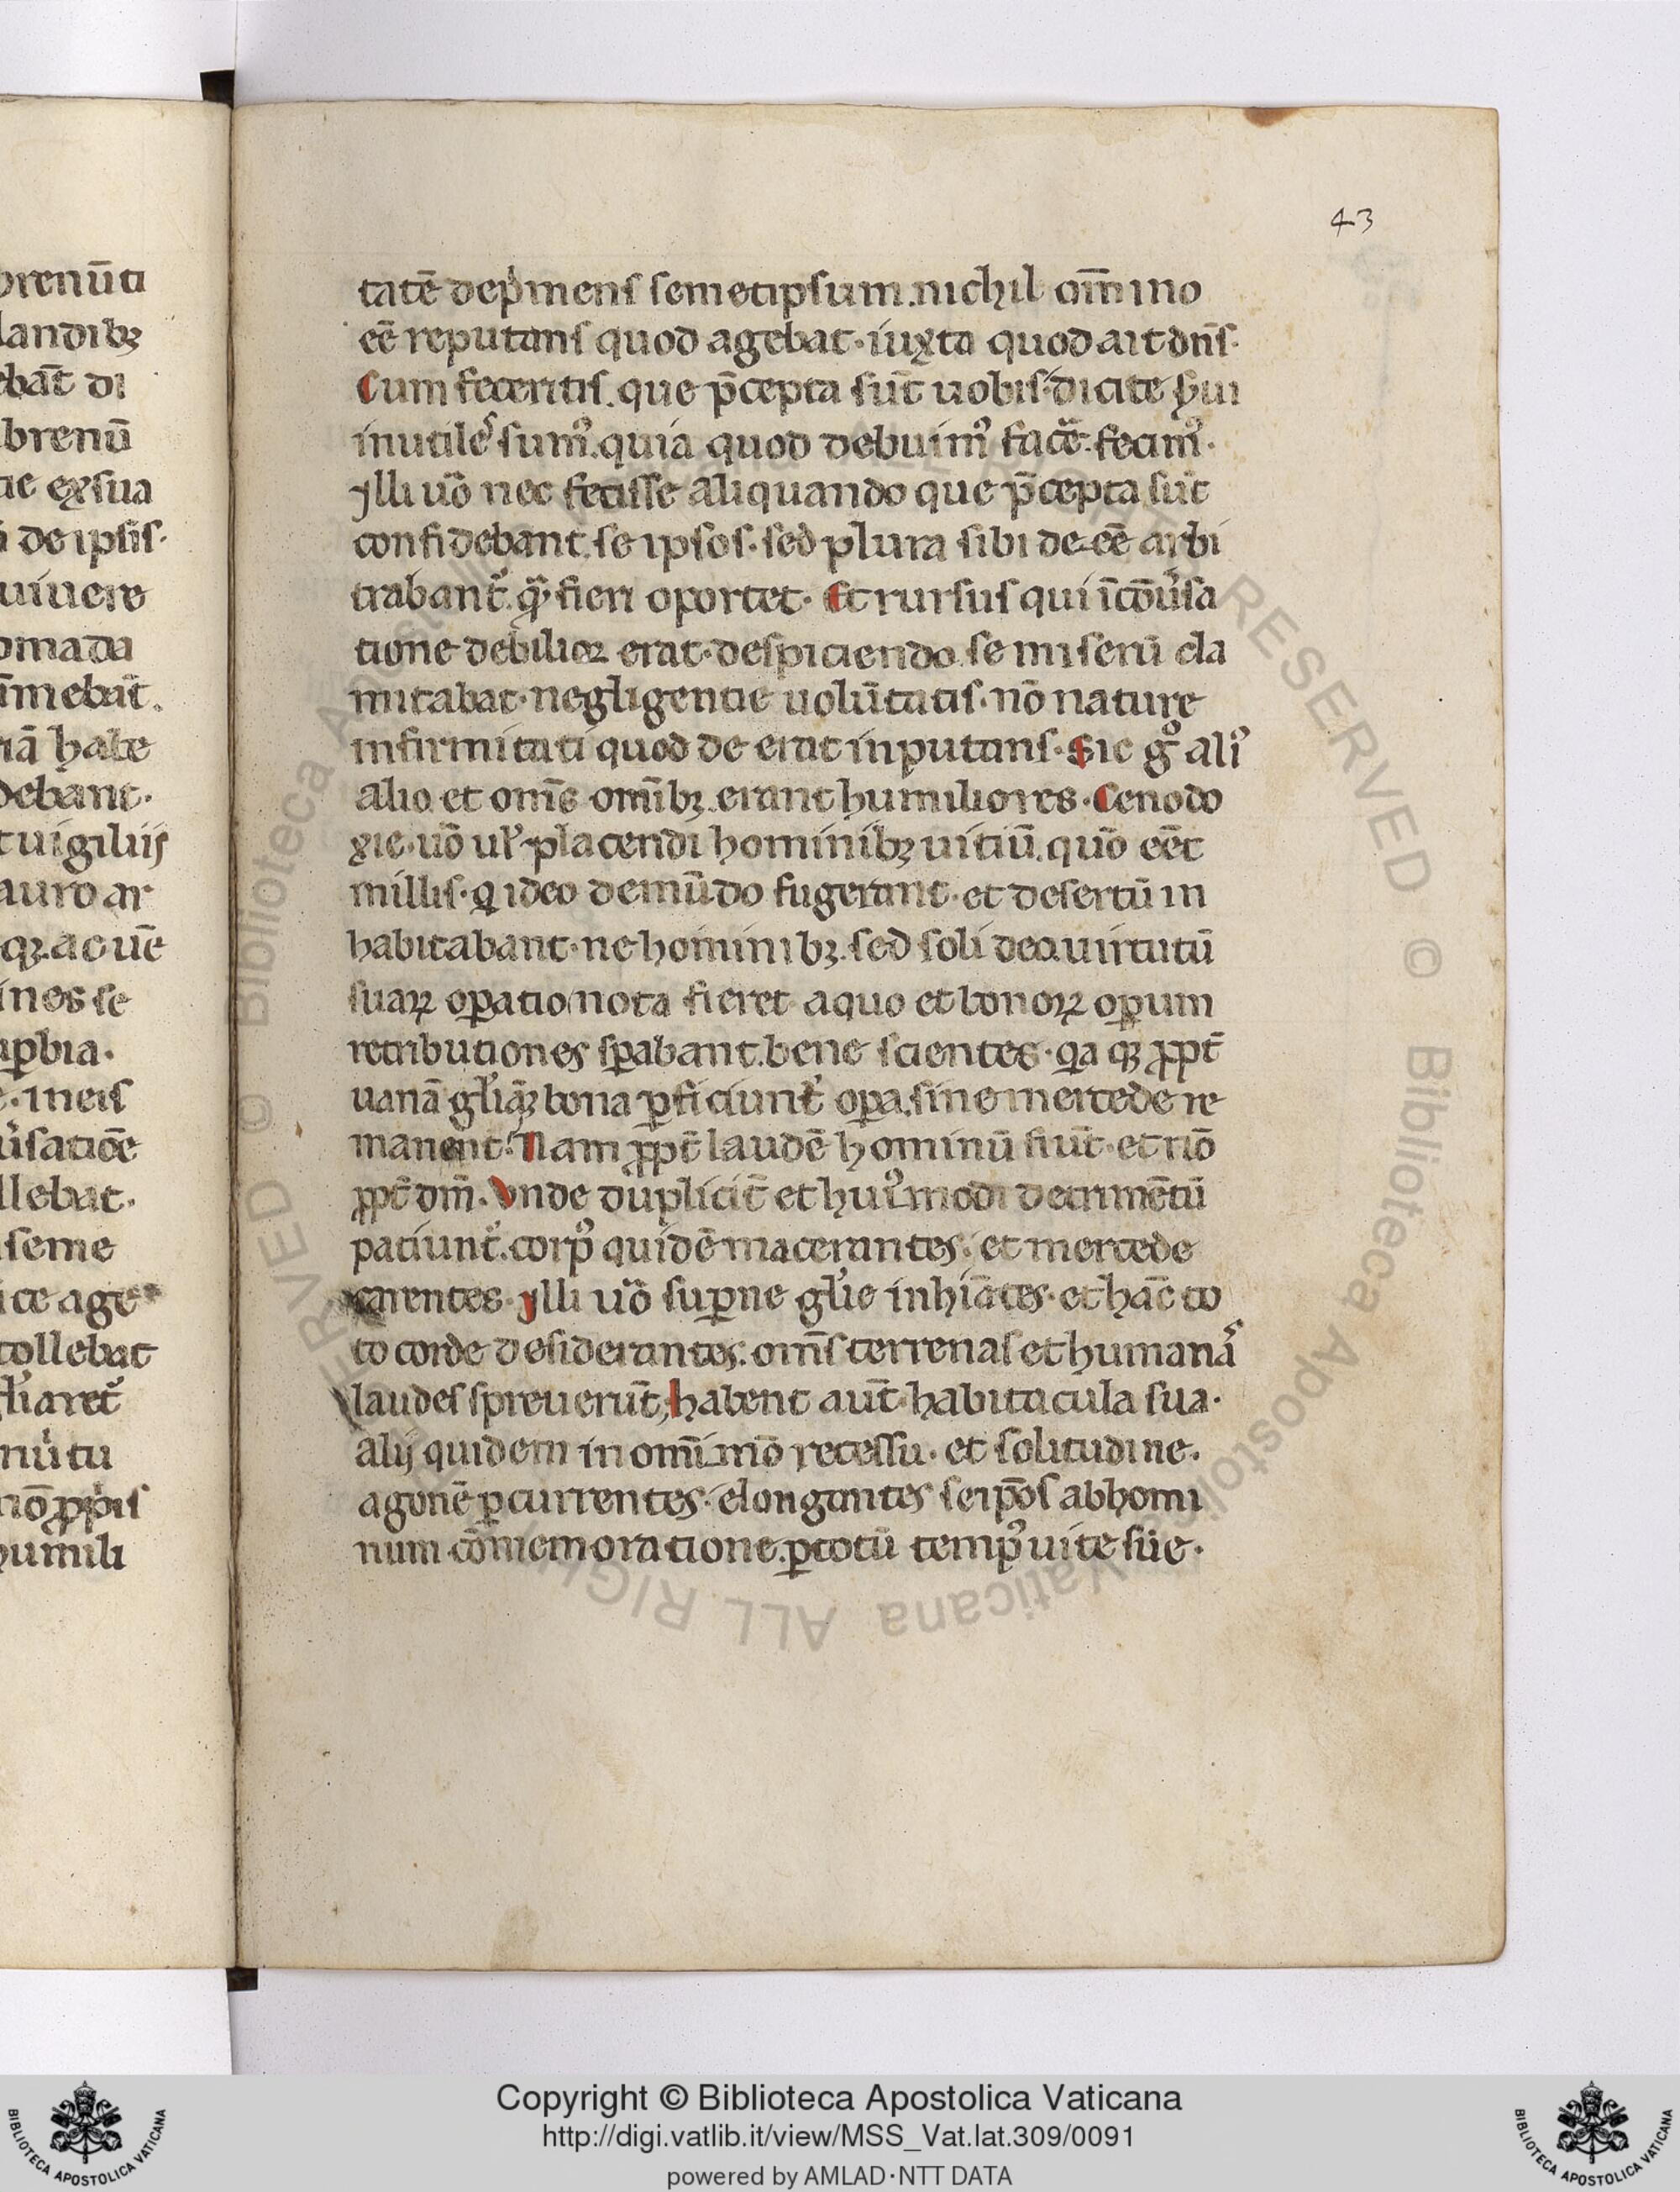 brenūti
landibꝫ
ebāt di
brenū
tie exsua
i de ipsis·
uiuere
omada
īmebāt.
iā habe
debant·
t uigiliis
auro ar
qꝫ. ac uē
ines se
uꝑbia·
e· ineis
ūsatiōe
llebat·
seme
ice age
tollebat
gl'iaret᷑
nūtu
nō ꝓpiis
humili
43
tatē dep̓mens semetipsum. nichil om̄ino
eē reputans quod agebat· iuxta quod ait dn̄s·
Cum feceritis. que p̄cepta sūt uobis· dicite s̓ui
inutiles sumꝰ. quia quod debuimꝰ facē· fecimꝰ·
Illi uō nec fecisse aliquando que p̄cepta sūt
confidebant. se ipsos· sed plura sibi de eē arbi
trabant᷑. qͣ fieri oportet· Et rursus qui īcōu̓sa
tione debilior erat· despiciendo se miserū cla
mitabat· negligentie uolūtatis· nō nature
infirmitati quod de erat inputans· Sic gͦ aliꝰ
alio et om̄s om̄ibꝫ. erant humiliores· Cenodo
xie· uō ul̓ placendi hominibꝫ uitiū. quō eēt
millis· q ideo de mūdo fugerant· et desertū in
habitabant· ne hominibꝫ. sed soli deo. uirtutū
suaꝝ oꝑatio nota fieret a quo et bonoꝝ oꝑum
retributiones sꝑabant. bene scientes· qa qꝫ ꝓpt̄
uanā gl̓iāꝫ bona ꝑficiunt᷑ oꝑa. sine mercede re
manent· Nam ꝓpt̄ laudē hominū fiūt· et nō
ꝓpt̄ dm̄· Vnde duplicit̄ et huiꝰmodi detrimētū
patiunt᷑. corpꝰ quidē macerantes· et mercede
carentes· Illi uō suꝑne gl̓ie inhiātes· et hāc to
to corde desiderantes. om̄s terrenas et humanas
laudes spreuerūt; habent aut̄ habitacula sua·
alij quidem in om̄i imō recessu· et solitudine·
agonē ꝑcurrentes· elongantes seip̄os ab homi
num cōmemoratione. ꝑ totū tempꝰ uite sue·
Copyright © Biblioteca Apostolica Vaticana
http://digi.vatlib.it/view/MSS_Vat.lat.309/0091
powered by AMLAD·NTT DATA
BIBLIOTECA APOSTOLICA VATICANA
BIBLIOTECA APOSTOLICA VATICANA
© Biblioteca Apostolica Vaticana ALL RIGHTS RESERVED